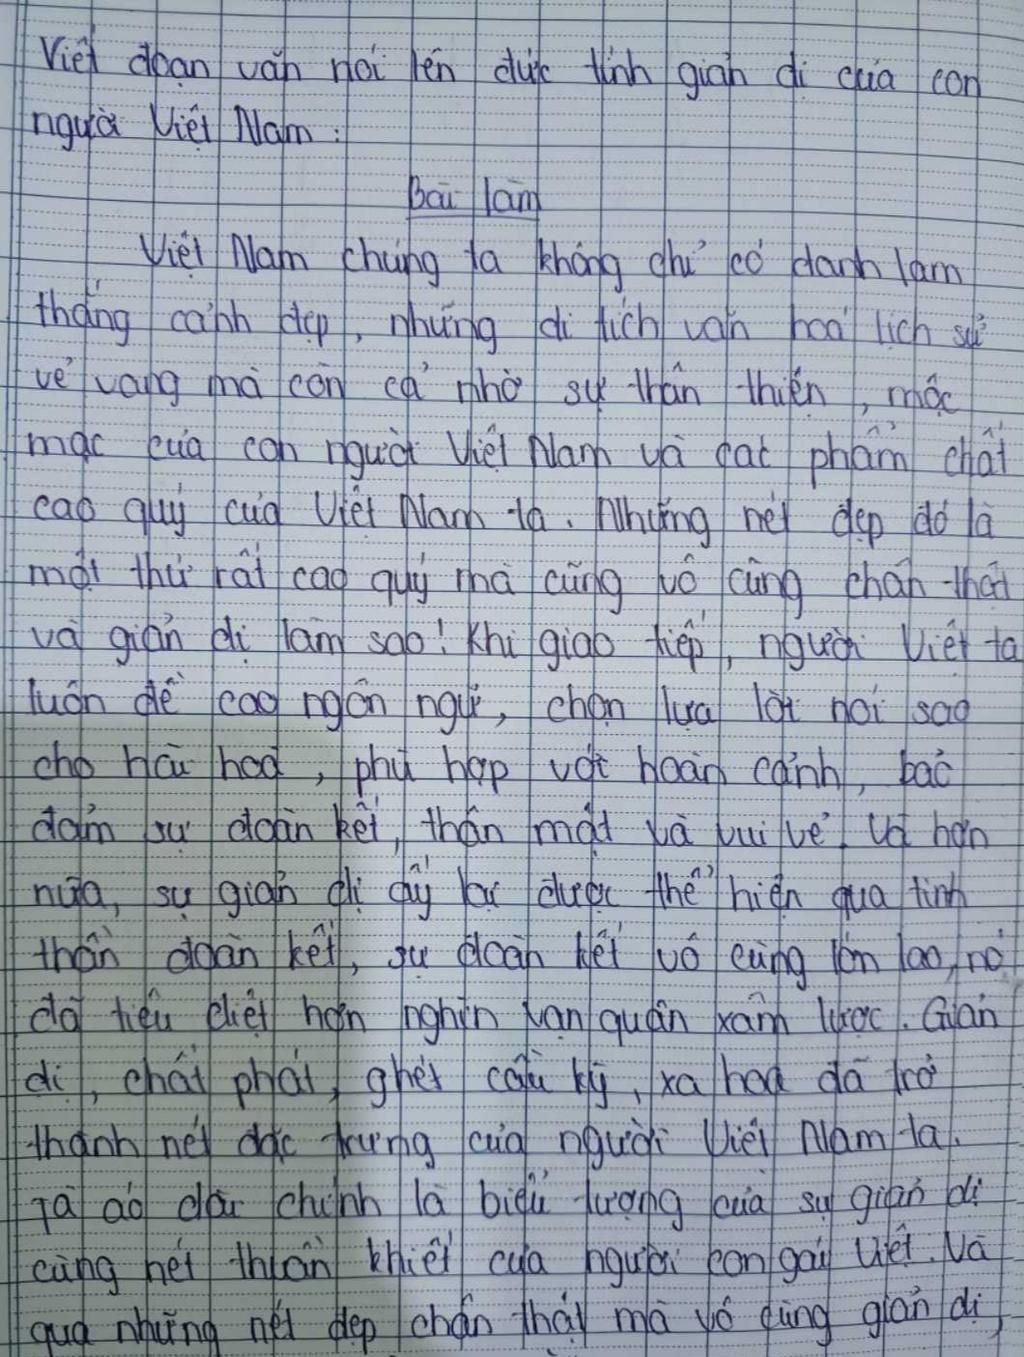 Viết đoạn văn nói lên đức tính giản dị của con
người Việt Nam:
Bài làm
Việt Nam chúng ta không chỉ có danh lam
thắng cảnh đẹp, những di tích văn hoá lịch sử
vẻ vang mà còn cả nhờ sự thân thiện, mộc
mạc của con người Việt Nam và các phẩm chất
cao quý của Việt Nam ta. Những nét đẹp đó là
một thứ rất cao quý mà cũng vô cùng chân thật
và giản dị làm sao! Khi giao tiếp, người Việt ta
luôn đề cao ngôn ngữ, chọn lựa lời nói sao
cho hài hoà, phù hợp với hoàn cảnh, bảo
đảm sự đoàn kết, thân mật và vui vẻ. Và hơn
nữa, sự giản dị ấy lại được thể hiện qua tinh
thần đoàn kết, sự đoàn kết vô cùng lớn lao, nó
đã tiêu diệt hơn nghìn vạn quân xâm lược. Giản
dị, chất phát, ghét cầu kỳ, xa hoa đã trở
thành nét đặc trưng của người Việt Nam ta.
Tà áo dài chính là biểu tượng của sự giản dị
cùng nét thuần khiết của người con gái Việt. Và
qua những nét đẹp chân thật mà vô cùng giản dị,